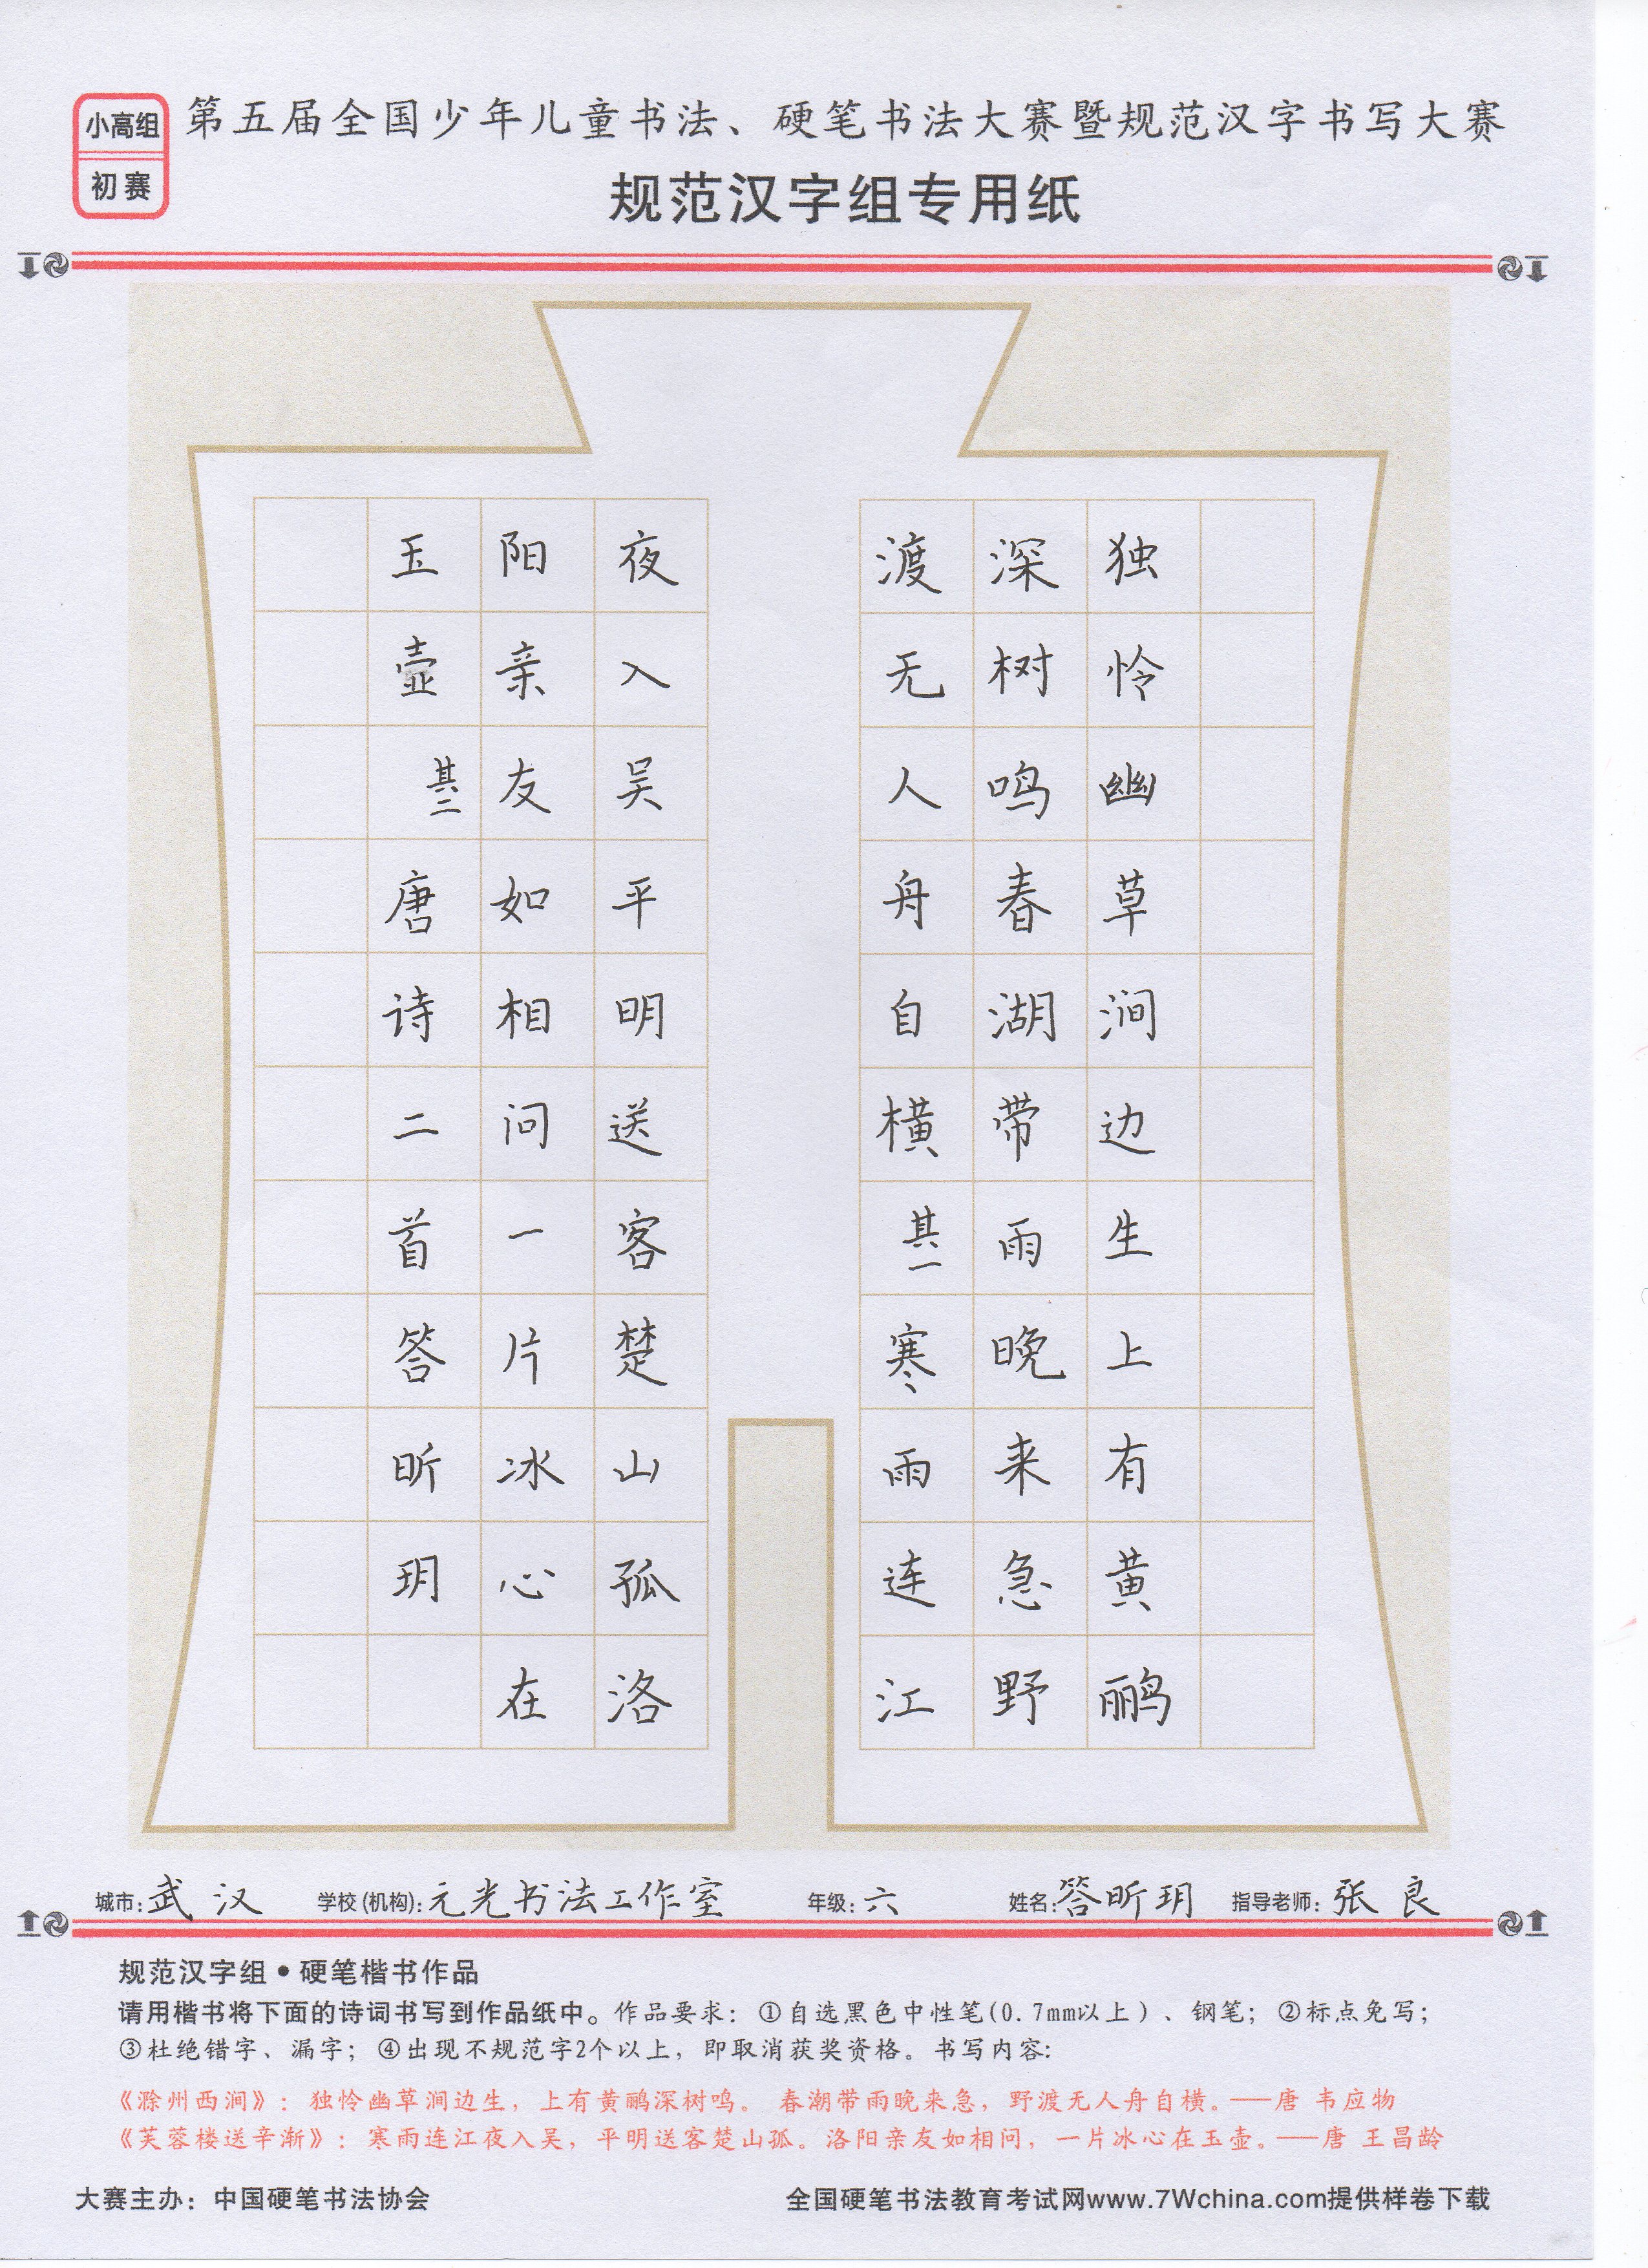 小高组
初赛
第五届全国少年儿童书法、硬笔书法大赛暨规范汉字书写大赛
规范汉字组专用纸
独怜幽草涧边生上有黄鹂
深树鸣春湖带雨晚来急野
渡无人舟自横其一寒雨连江
夜入吴平明送客楚山孤洛
阳亲友如相问一片冰心在
玉壶其二唐诗二首答昕玥
城市:武汉 学校(机构):元光书法工作室 年级:六 姓名:答昕玥 指导老师:张良
规范汉字组●硬笔楷书作品
请用楷书将下面的诗词书写到作品纸中。作品要求：①自选黑色中性笔(0.7mm以上)、钢笔；②标点免写；
③杜绝错字、漏字；④出现不规范字2个以上，即取消获奖资格。书写内容：
《滁州西涧》：独怜幽草涧边生，上有黄鹂深树鸣。春潮带雨晚来急，野渡无人舟自横。——唐 韦应物
《芙蓉楼送辛渐》：寒雨连江夜入吴，平明送客楚山孤。洛阳亲友如相问，一片冰心在玉壶。——唐 王昌龄
大赛主办：中国硬笔书法协会 全国硬笔书法教育考试网www.7Wchina.com提供样卷下载